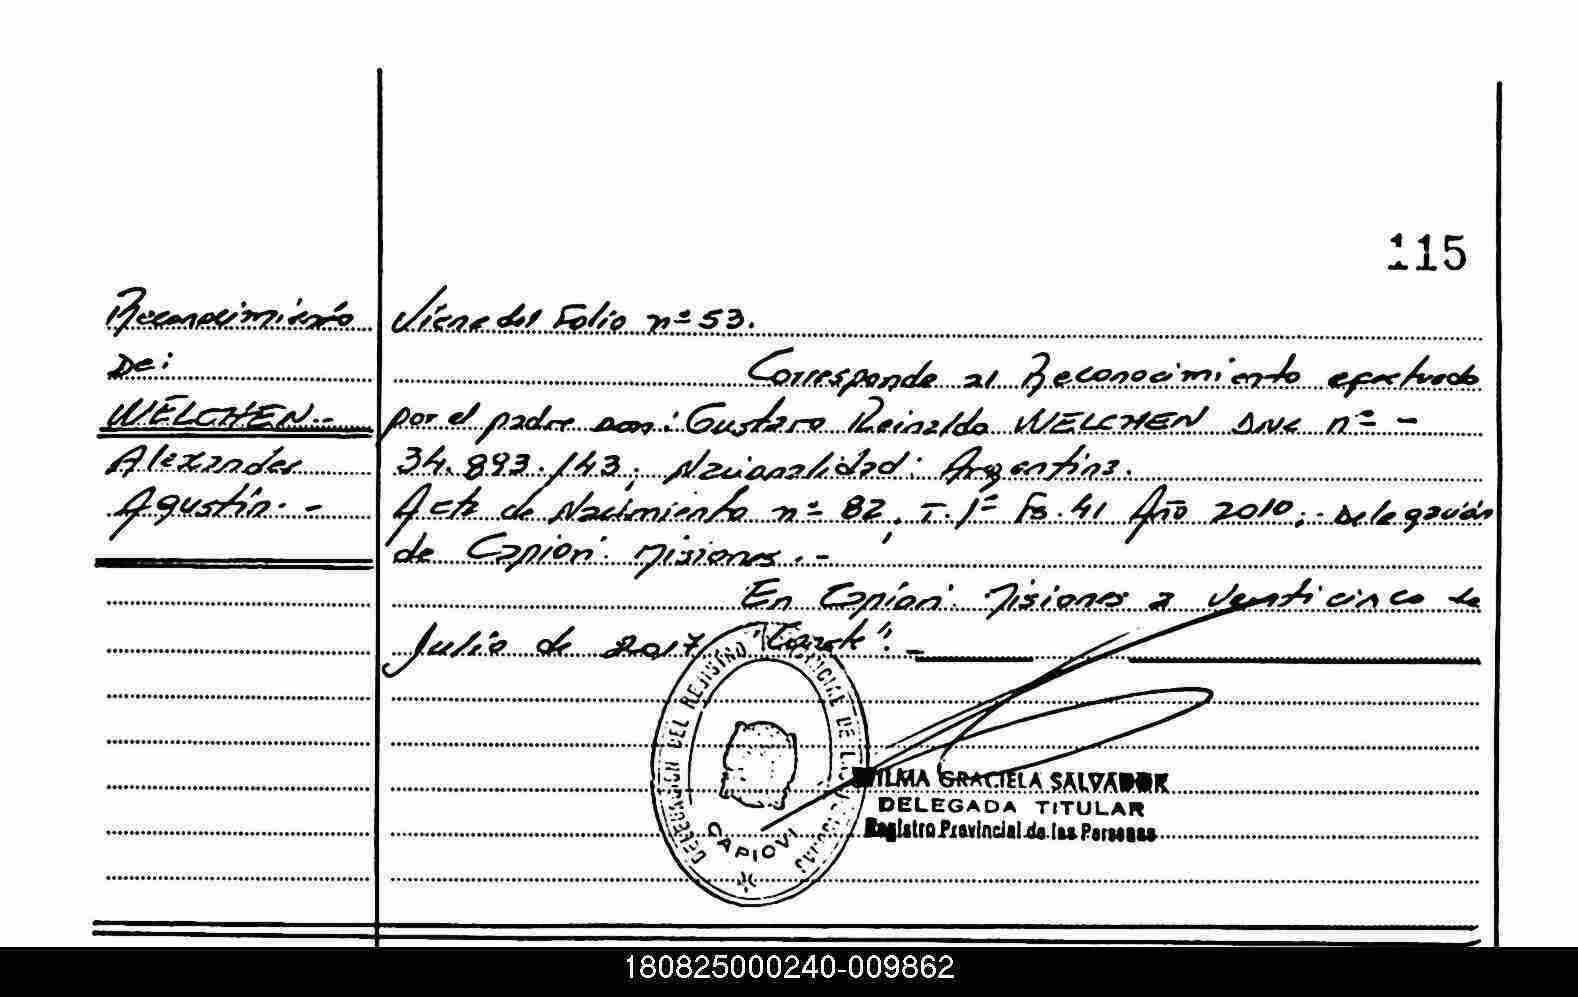 115
Reconocimiento
De:
WELCHEN.-
Alexander
Agustín.-
Viene del Folio nº 53.
Corresponde al Reconocimiento efectuado
por el padre don: Gustavo Reinaldo WELCHEN DNI nº -
34.893.143, Nacionalidad: Argentina.
Acta de Nacimiento nº 82, T. 1º Fs. 41 Año 2010, Delegación
de Capioví Misiones.-
En Capioví Misiones a veinticinco de
Julio de 2017 "Conste".-
DELEGACION DEL REGISTRO PROVINCIAL DE LAS PERSONAS
CAPIOVI
WILMA GRACIELA SALVADOR
DELEGADA TITULAR
Registro Provincial de las Personas
180825000240-009862